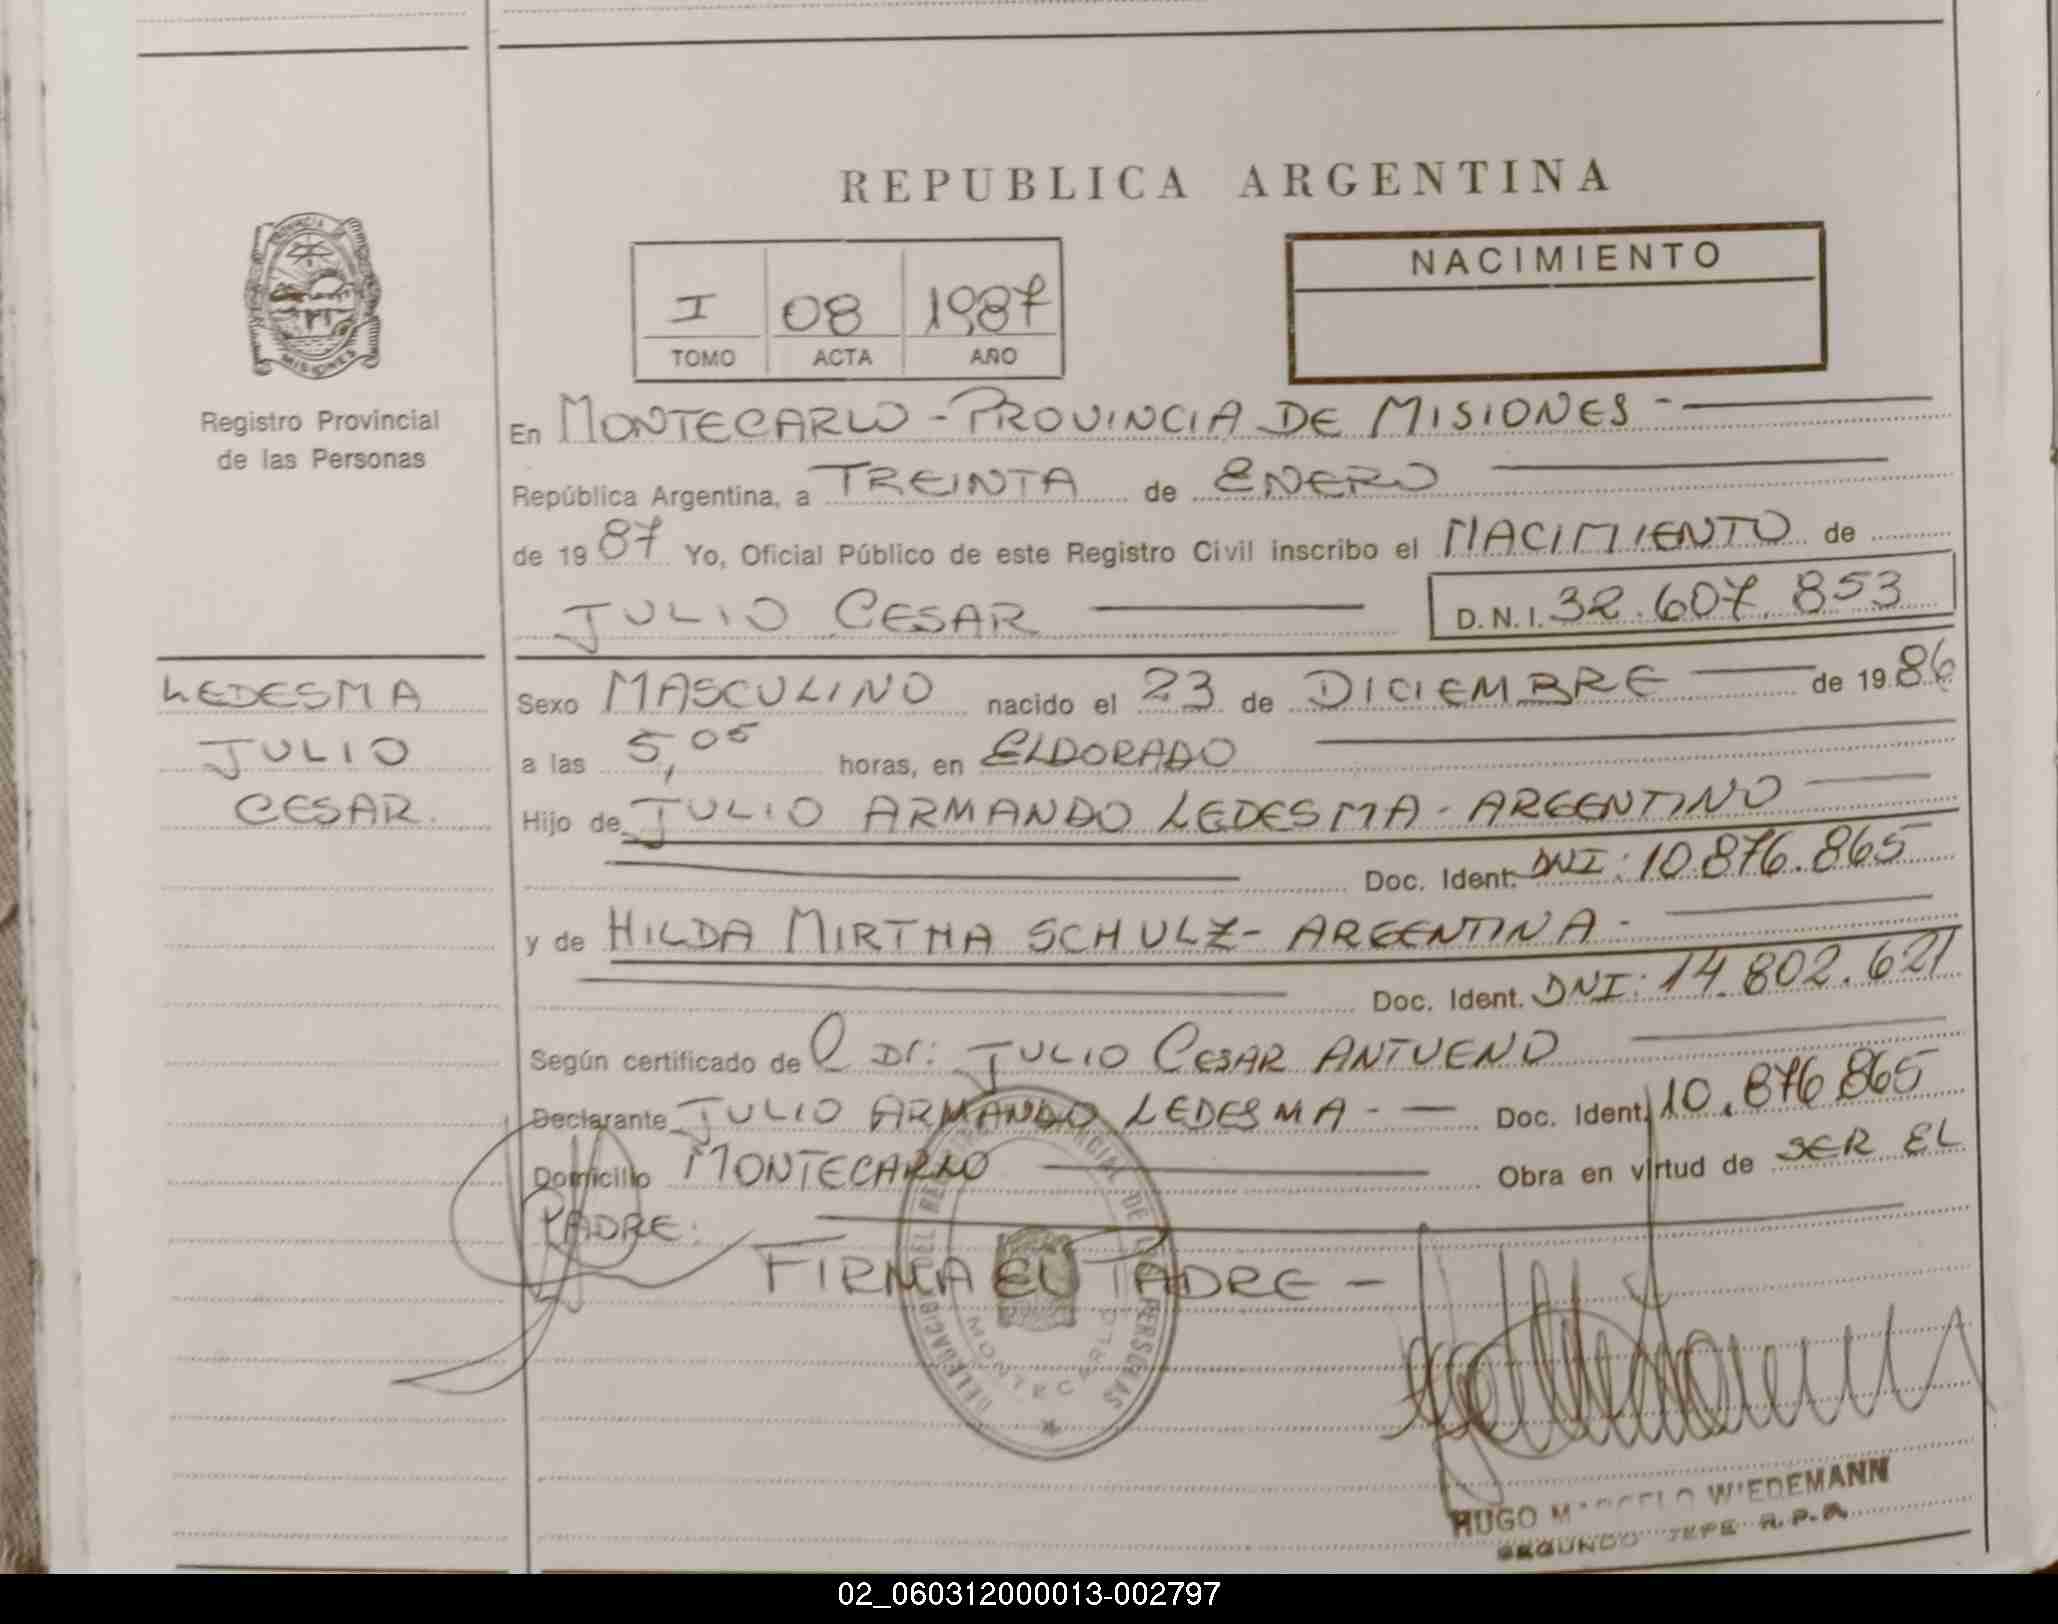 REPUBLICA ARGENTINA
PROVINCIA
MISIONES
Registro Provincial
de las Personas
I 08 1987
TOMO ACTA AÑO
NACIMIENTO
En MONTECARLO - PROVINCIA DE MISIONES -
República Argentina, a TREINTA de ENERO
de 1987 Yo, Oficial Público de este Registro Civil inscribo el NACIMIENTO de
JULIO CESAR D.N.I. 32.607.853
LEDESMA
JULIO
CESAR.
Sexo MASCULINO nacido el 23 de DICIEMBRE de 1986
a las 5,05 horas, en ELDORADO
Hijo de JULIO ARMANDO LEDESMA - ARGENTINO
Doc. Ident. DNI: 10.876.865
y de HILDA MIRTHA SCHULZ - ARGENTINA -
Doc. Ident. DNI: 14.802.621
Según certificado de l Dr: JULIO CESAR ANTUENO
Declarante JULIO ARMANDO LEDESMA - Doc. Ident. 10.876.865
Domicilio MONTECARLO Obra en virtud de SER EL
PADRE:
FIRMA EL PADRE -
DE PERSONAS
MONTECARLO
HUGO MARCELO WIEDEMANN
SEGUNDO JEFE R.P.P.
02_060312000013-002797